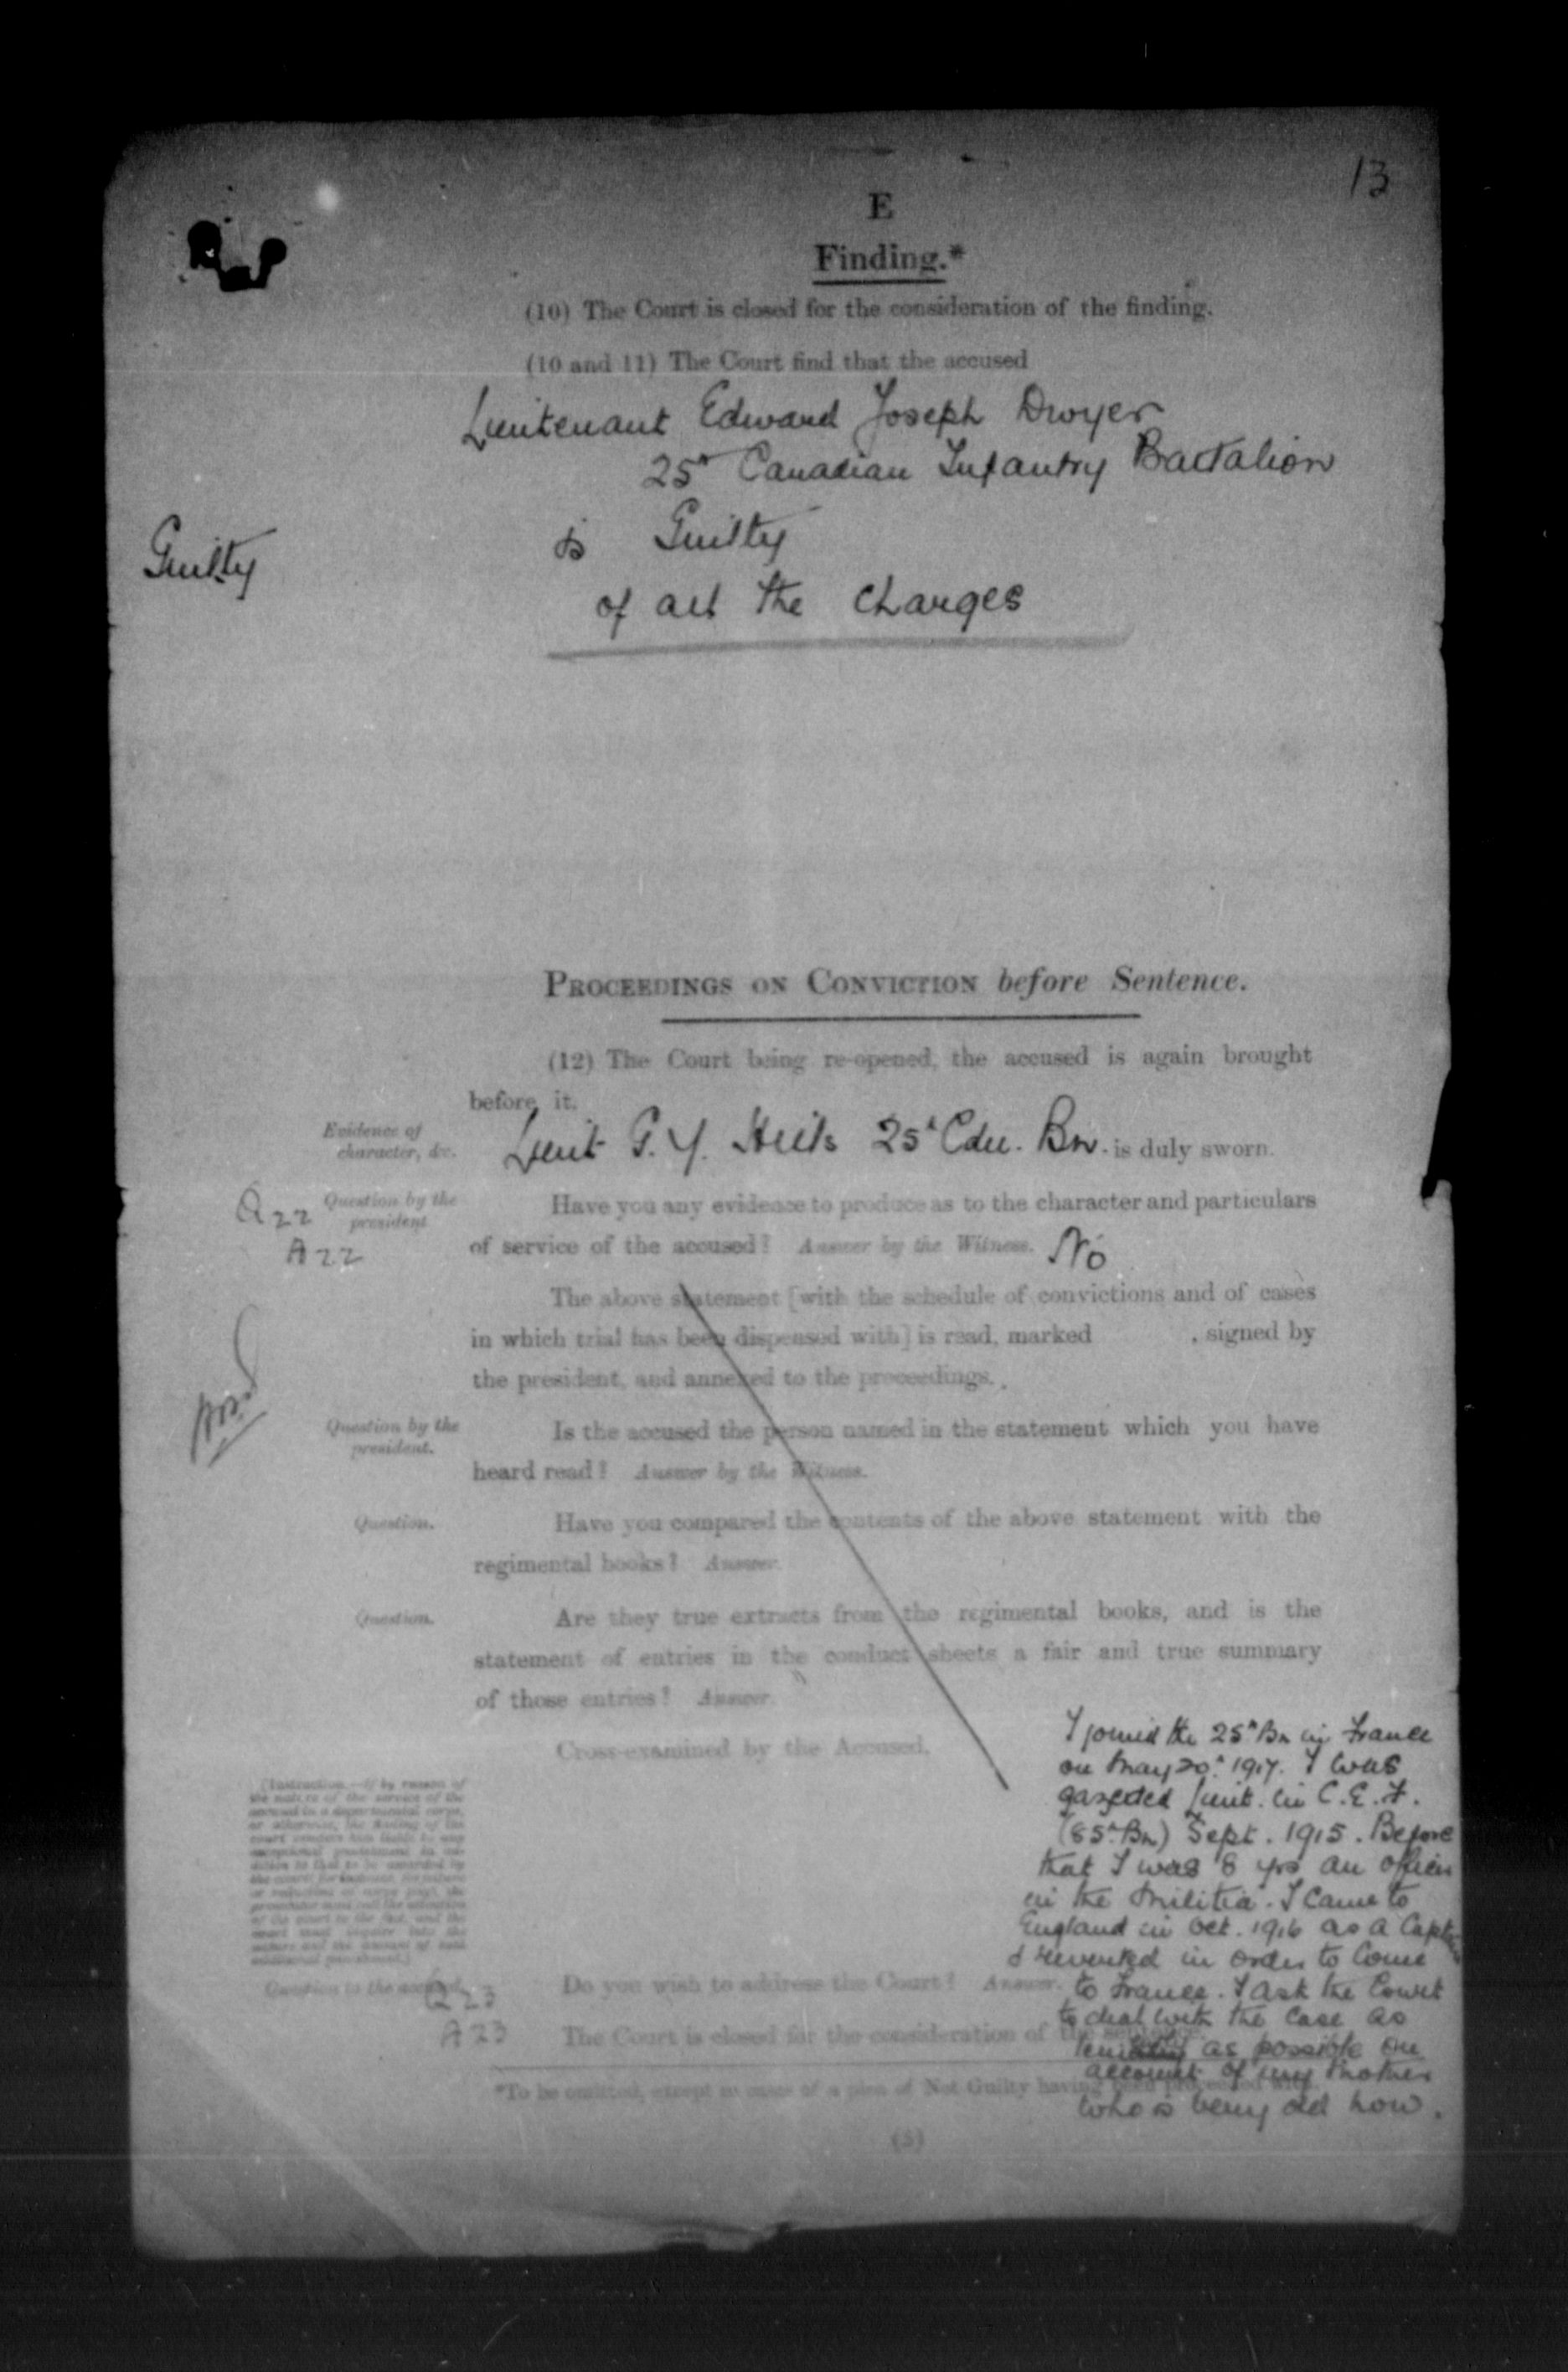 13
E
Finding.*
(10) The Court is closed for the consideration of the finding.
(10 and 11) The Court find that the accused
Lieutenant Edward Joseph Dwyer
25th Canadian Infantry Battalion
Guilty
is Guilty
of all the charges
PROCEEDINGS ON CONVICTION before Sentence.
(12) The Court being re-opened, the accused is again brought
before it.
Evidence of
character, &c.
Lieut G. Y. 25th Cdn. Bn. is duly sworn.
Q22 Question by the
president
A22
Have you any evidence to produce as to the character and particulars
of service of the accused? Answer by the Witness. No
The above statement [with the schedule of convictions and of cases
in which trial has been dispensed with] is read, marked , signed by
the president, and annexed to the proceedings.
Question by the
president.
Is the accused the person named in the statement which you have
heard read? Answer by the Witness.
Question.
Have you compared the contents of the above statement with the
regimental books? Answer.
Question.
Are they true extracts from the regimental books, and is the
statement of entries in the conduct sheets a fair and true summary
of those entries? Answer.
Cross-examined by the Accused.
[Instruction.—If by reason of
the nature of the service of the
accused in a departmental corps,
or otherwise, the finding of the
court renders him liable to any
exceptional punishment in ad-
dition to that to be awarded by
the court
prosecutor must call the attention
of the court to the fact, and the
court must inquire into the
nature and the amount of such
additional punishment.]
Question to the accused.
Q23
Do you wish to address the Court? Answer.
I joined the 25th Bn in France
on May 20th 1917. I was
gazetted Lieut. in C.E.F.
(85th Bn) Sept. 1915. Before
that I was 8 yrs an officer
in the Militia. I came to
England in Oct. 1916 as a Captain
& reverted in order to come
to France. I ask the Court
to deal with the case as
as possible on
account of my Mother
who is very old now.
A23
The Court is closed for the consideration of the sentence.
*To be omitted, except in case of a plea of Not Guilty having been proceeded with.
(5)